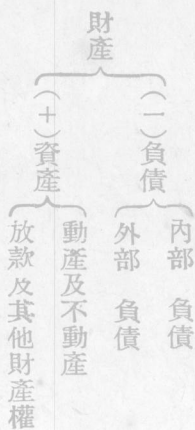 財產
(一)負債
內部 負債
外部 負債
(十)資產
動產及不動產
放款及其他財產權